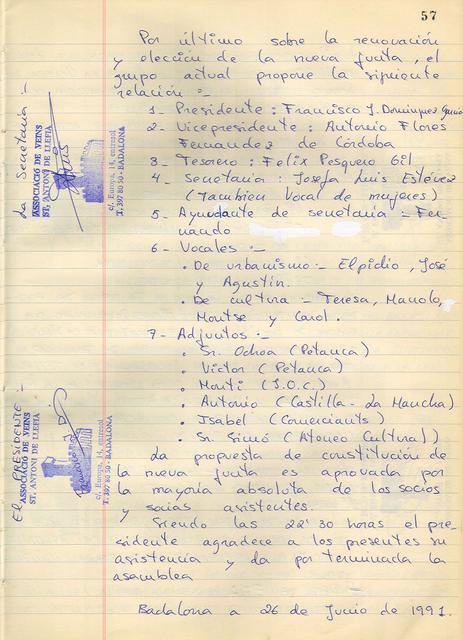 57
Por último sobre la renovación
y elección de la nueva junta, el
grupo actual propone la siguiente
relación :-
1- Presidente : Francisco J. Dominguez
2- Vicepresidente : Antonio Flores
Fernandez de Córdoba
3- Tesorero : Felix Pesquero Gil
4- Secretaria : Josefa Luis Estévez
(Tambien Vocal de mujeres)
5- Ayudante de secretaria :- Fer-
nando
6- Vocales :-
• De urbanismo :- Elpidio, José
y Agustín.
• De cultura :- Teresa, Manolo,
Montse y Carol.
7- Adjuntos :-
• Sr. Ochoa (Petanca)
• Victor (Petanca)
• Monti (J.O.C.)
• Antonio (Castilla - La Mancha)
• Isabel (Comerciants)
• Sr. Simó (Ateneo Cultural)
La propuesta de constitución de
la nueva junta es aprovada por
la mayoría absoluta de los socios
y socias asistentes.
Siendo las 22'30 horas el pre-
sidente agradece a los presentes su
asistencia y da por terminada la
asamblea
Badalona a 26 de Junio de 1991.
La Secretaria :-
ASSOCIACIÓ DE VEINS
ST. ANTONI DE LLEFIÀ
c/. Europa, 14, entresol
T. 397 80 50 - BADALONA
El PRESIDENTE :-
ASSOCIACIÓ DE VEINS
ST. ANTONI DE LLEFIÀ
c/. Europa, 14, entresol
T. 397 80 50 - BADALONA